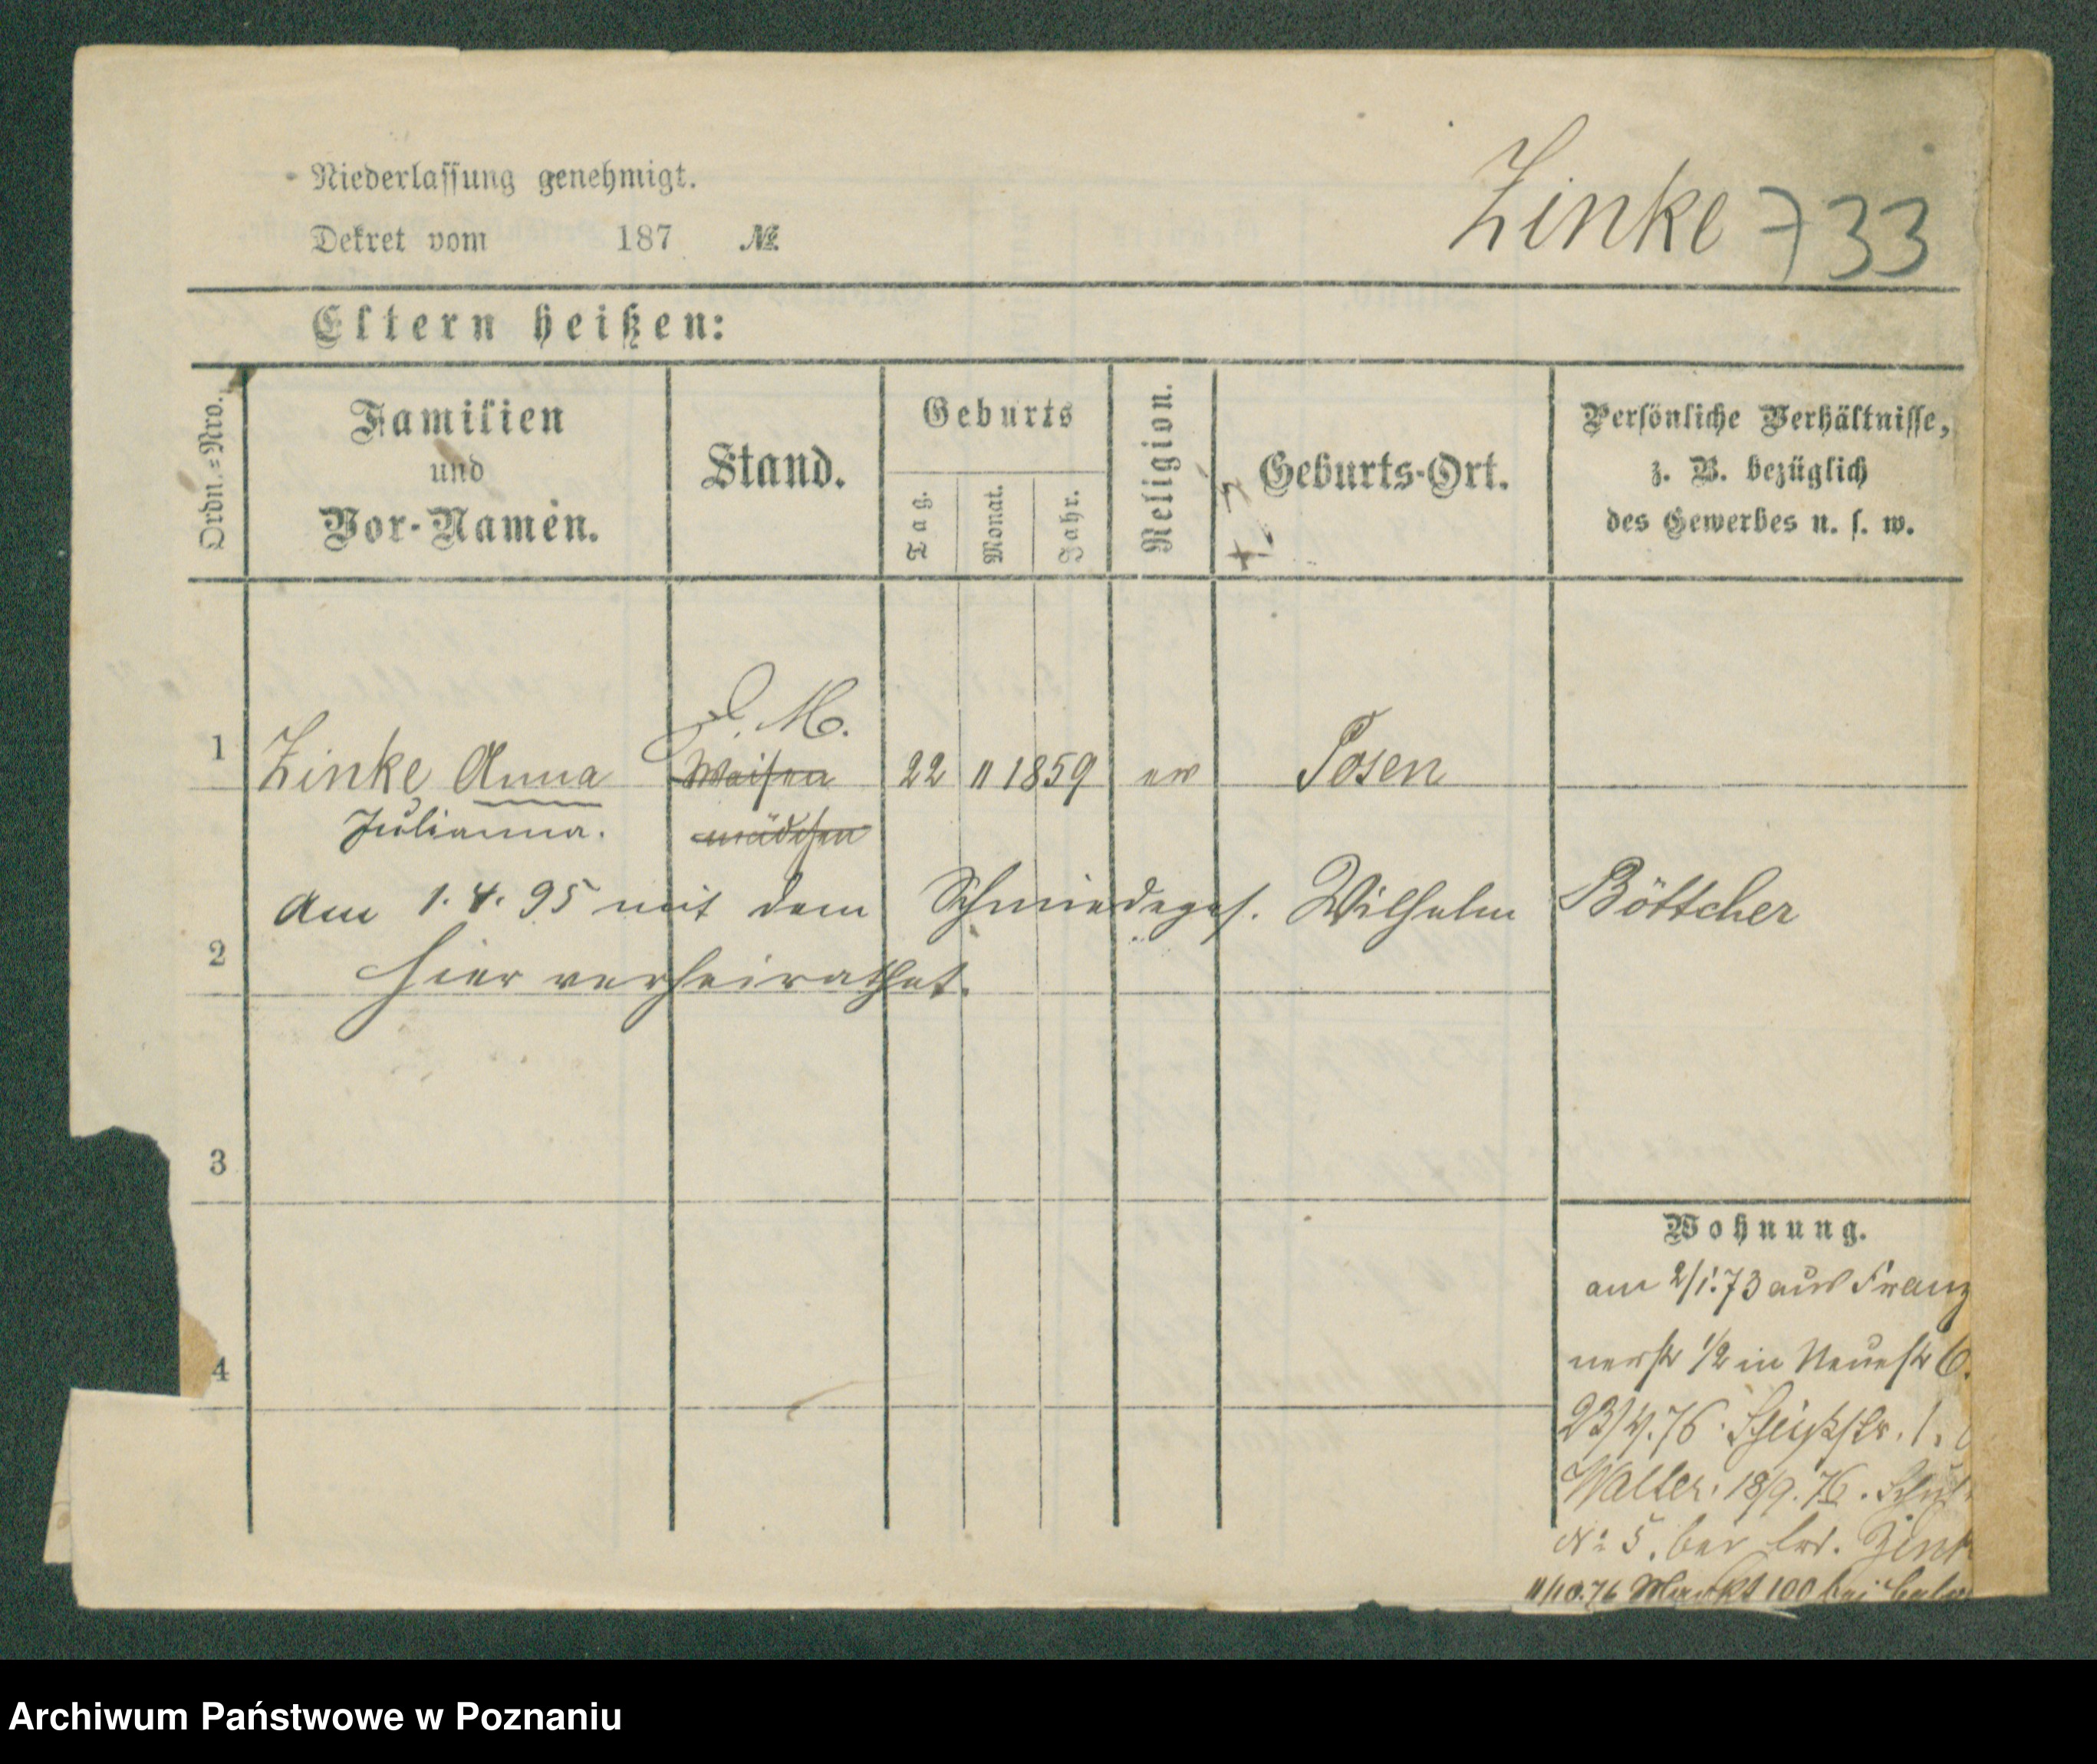 Niederlassung genehmigt.
Zinke 733
Dekret vom 187 №
Eltern heißen:
Ordn.-Nro.
Familien
und
Vor-Namen.
Stand.
Geburts
Tag.
Monat.
Jahr.
Religion.
Geburts-Ort.
Persönliche Verhältnisse,
z. B. bezüglich
des Gewerbes u. s. w.
D. M.
1 Zinke Anna Waisen 22 11 1859 ev Posen
Julianna. mädchen
Am 1.4.95 mit dem Schmiedeges. Wilhelm Böttcher
2
hier verheirathet.
3
Wohnung.
am 2/1.73 aus Franz
nerstr 1/2 in Neuestr 6.
4
23/4.76. 1.
Walter. 18/9.76.
№ 5. bei
11/10.76 Markt 100 bei
Archiwum Państwowe w Poznaniu